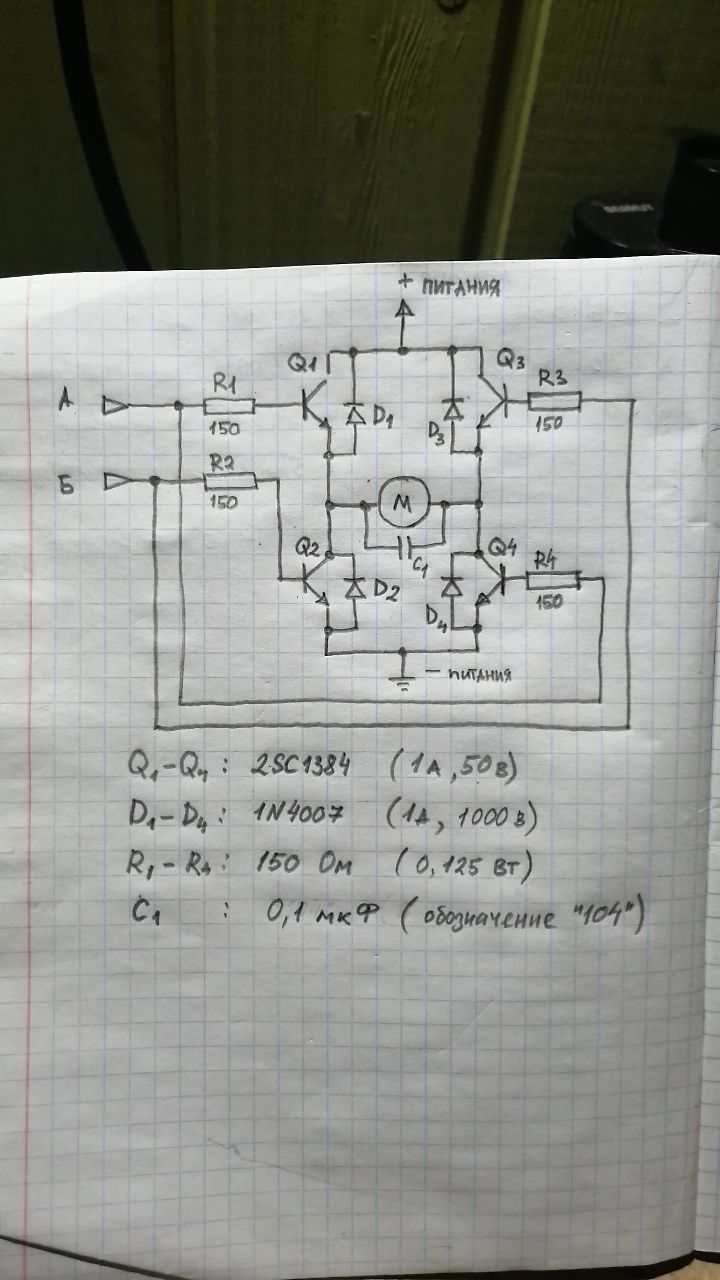 + ПИТАНИЯ
Q1
Q3
А
R1
150
D1
D3
R3
150
Б
R2
150
М
C1
Q2
Q4
D2
D4
R4
150
− ПИТАНИЯ
Q1-Q4: 2SC1384 (1А, 50В)
D1-D4: 1N4007 (1А, 1000В)
R1-R4: 150 Ом (0,125 Вт)
C1 : 0,1 мкФ (обозначение "104")